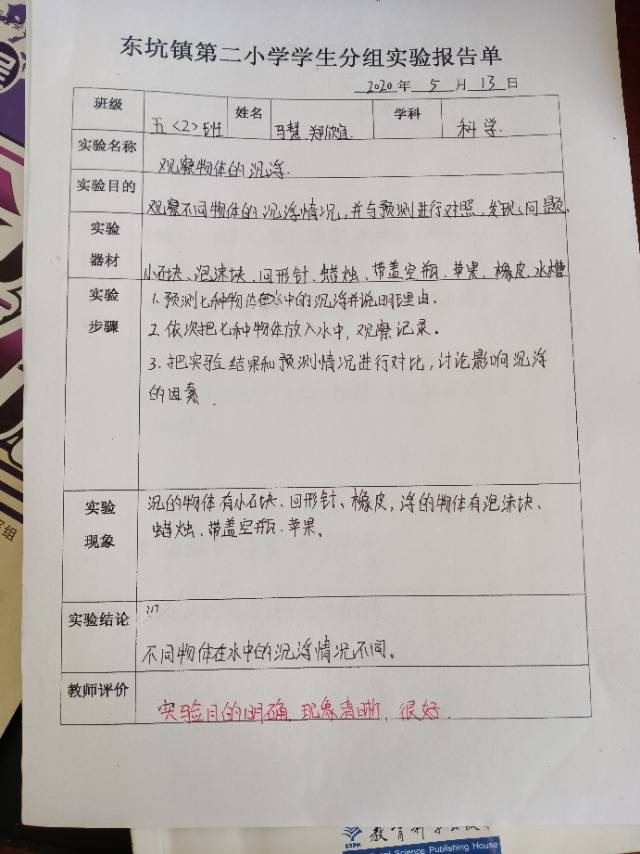 东坑镇第二小学学生分组实验报告单
2020年 5 月 13 日
班级 五〈2〉班 姓名 马慧 郑欣宜 学科 科学
实验名称 观察物体的沉浮
实验目的 观察不同物体的沉浮情况,并与预测进行对照,发现问题
实验
器材 小石块、泡沫块、回形针、蜡烛、带盖空瓶、苹果、橡皮,水槽
实验 1.预测七种物体在水中的沉浮并说明理由。
步骤 2.依次把七种物体放入水中,观察记录。
3.把实验结果和预测情况进行对比,讨论影响沉浮
的因素.
实验 沉的物体有小石块、回形针、橡皮,浮的物体有泡沫块、
现象 蜡烛、带盖空瓶、苹果。
实验结论
不同物体在水中的沉浮情况不同。
教师评价 实验目的明确,现象清晰,很好.
教育科学出版
Science Publishing House